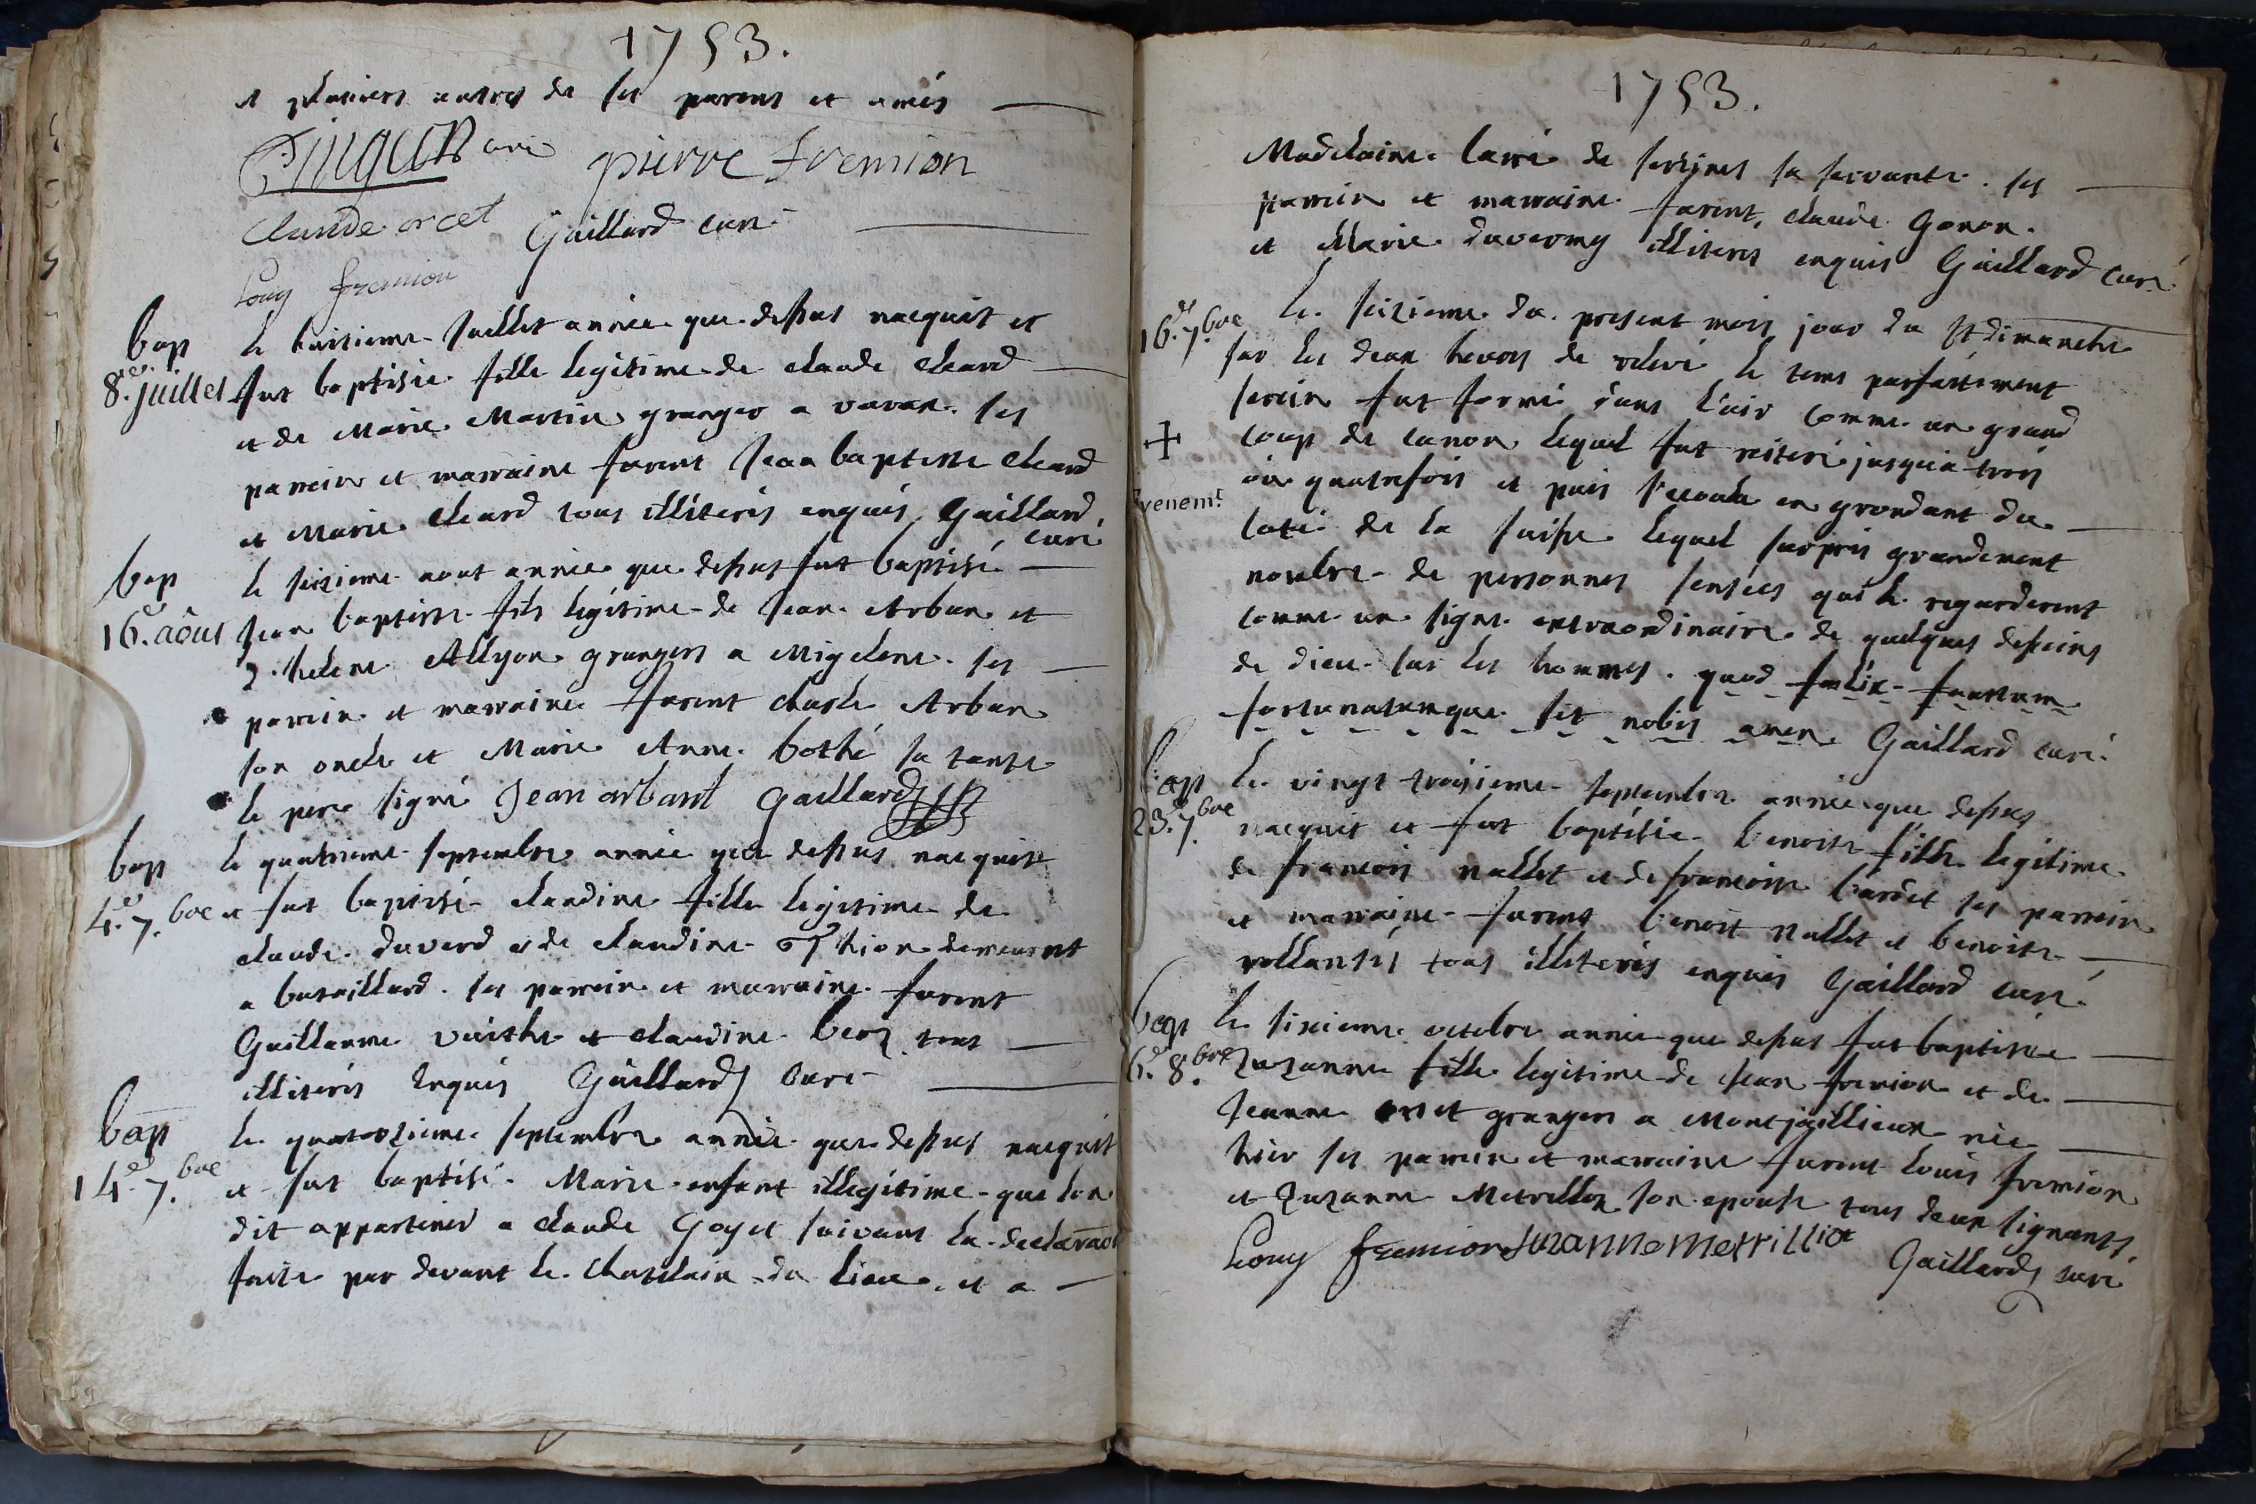 1753.
et plusieurs autres de ses parens et amis
curé pierre fremion
Claude orcet Gaillard curé
Louy fremion
bap
8.e juillet
le huitieme Juillet année que dessus nacquit et
fut baptisée fille legitime de claude cleard
et de Marie Martin granger a varan. ses
parrein et marraine furent Jean baptiste cleard
et Marie cleard tous illiterés enquis Gaillard
curé
bap
16.e aôut
le seizieme aout année que dessus fut baptisé
Jean baptiste fils legitime de Jean Arban et
d. helene Allyon grangers a Migelene. ses
parrein et marraine furent charle Arban
son oncle et Marie Anne bothé sa tante
le pere signé Jean arbant Gaillard
bap
4.e 7.bre
le quatrieme septembre année que dessus nacquit
et fut baptisé claudine fille legitime de
claude duverd et de claudine Thion demeurent
a bataillard. ses parrein et marraine furent
Guillaume et claudine tous
illiterés Enquis Gaillard Curé
bap
14.e 7.bre
le quatorzieme septembre année que dessus nacquit
et fut baptisé Marie enfant illegitime que lon
dit appartenir a claude Goyet suivant la declaraon
faite par devant le chatelain du lieu, et a
1753.
Madelaine Carré de serrines sa servante. ses
parrein et marraine furent, claude Gonon.
et Marie duverny illiterés enquis Gaillard curé
16.e 7.bre
+
Evenemt
le seizieme du present mois jour du st dimanche
sur les deux heures de relevé le tems parfaitement
serein fut formé dans l'air comme un grand
coup de canon lequel fut reiteré jusqu'a trois
ou quatrefois et puis s'ecoula en grondant du
coté de la suisse lequel surpris grandement
nombre de personnes sensées qui le regarderent
comme un signe extraordinaire de quelques desseins
de dieu sur les hommes. quod foelix faustum
fortunatumque sit nobis amen Gaillard curé
bap
23.e 7.bre
le vingt troisieme septembre année que dessus
nacquit et fut baptisée benoite fille legitime
de francois nallet et de francoise bardet ses parrein
et marraine furent benoit nallet et benoite
rollansés tous illiterés enquis Gaillard curé
bap
6.e 8.bre
le sixieme octobre année que dessus fut baptisée
Zuzanne fille legitime de Jean fremion et de
Jeanne orset grangers a Montjaillieux née
hier ses parrein et marraine furent Louis fremion
et Zuzanne Metrilliot son epouse tous deux signants.
Louy fremion suzanne metrilliot
Gaillard curé